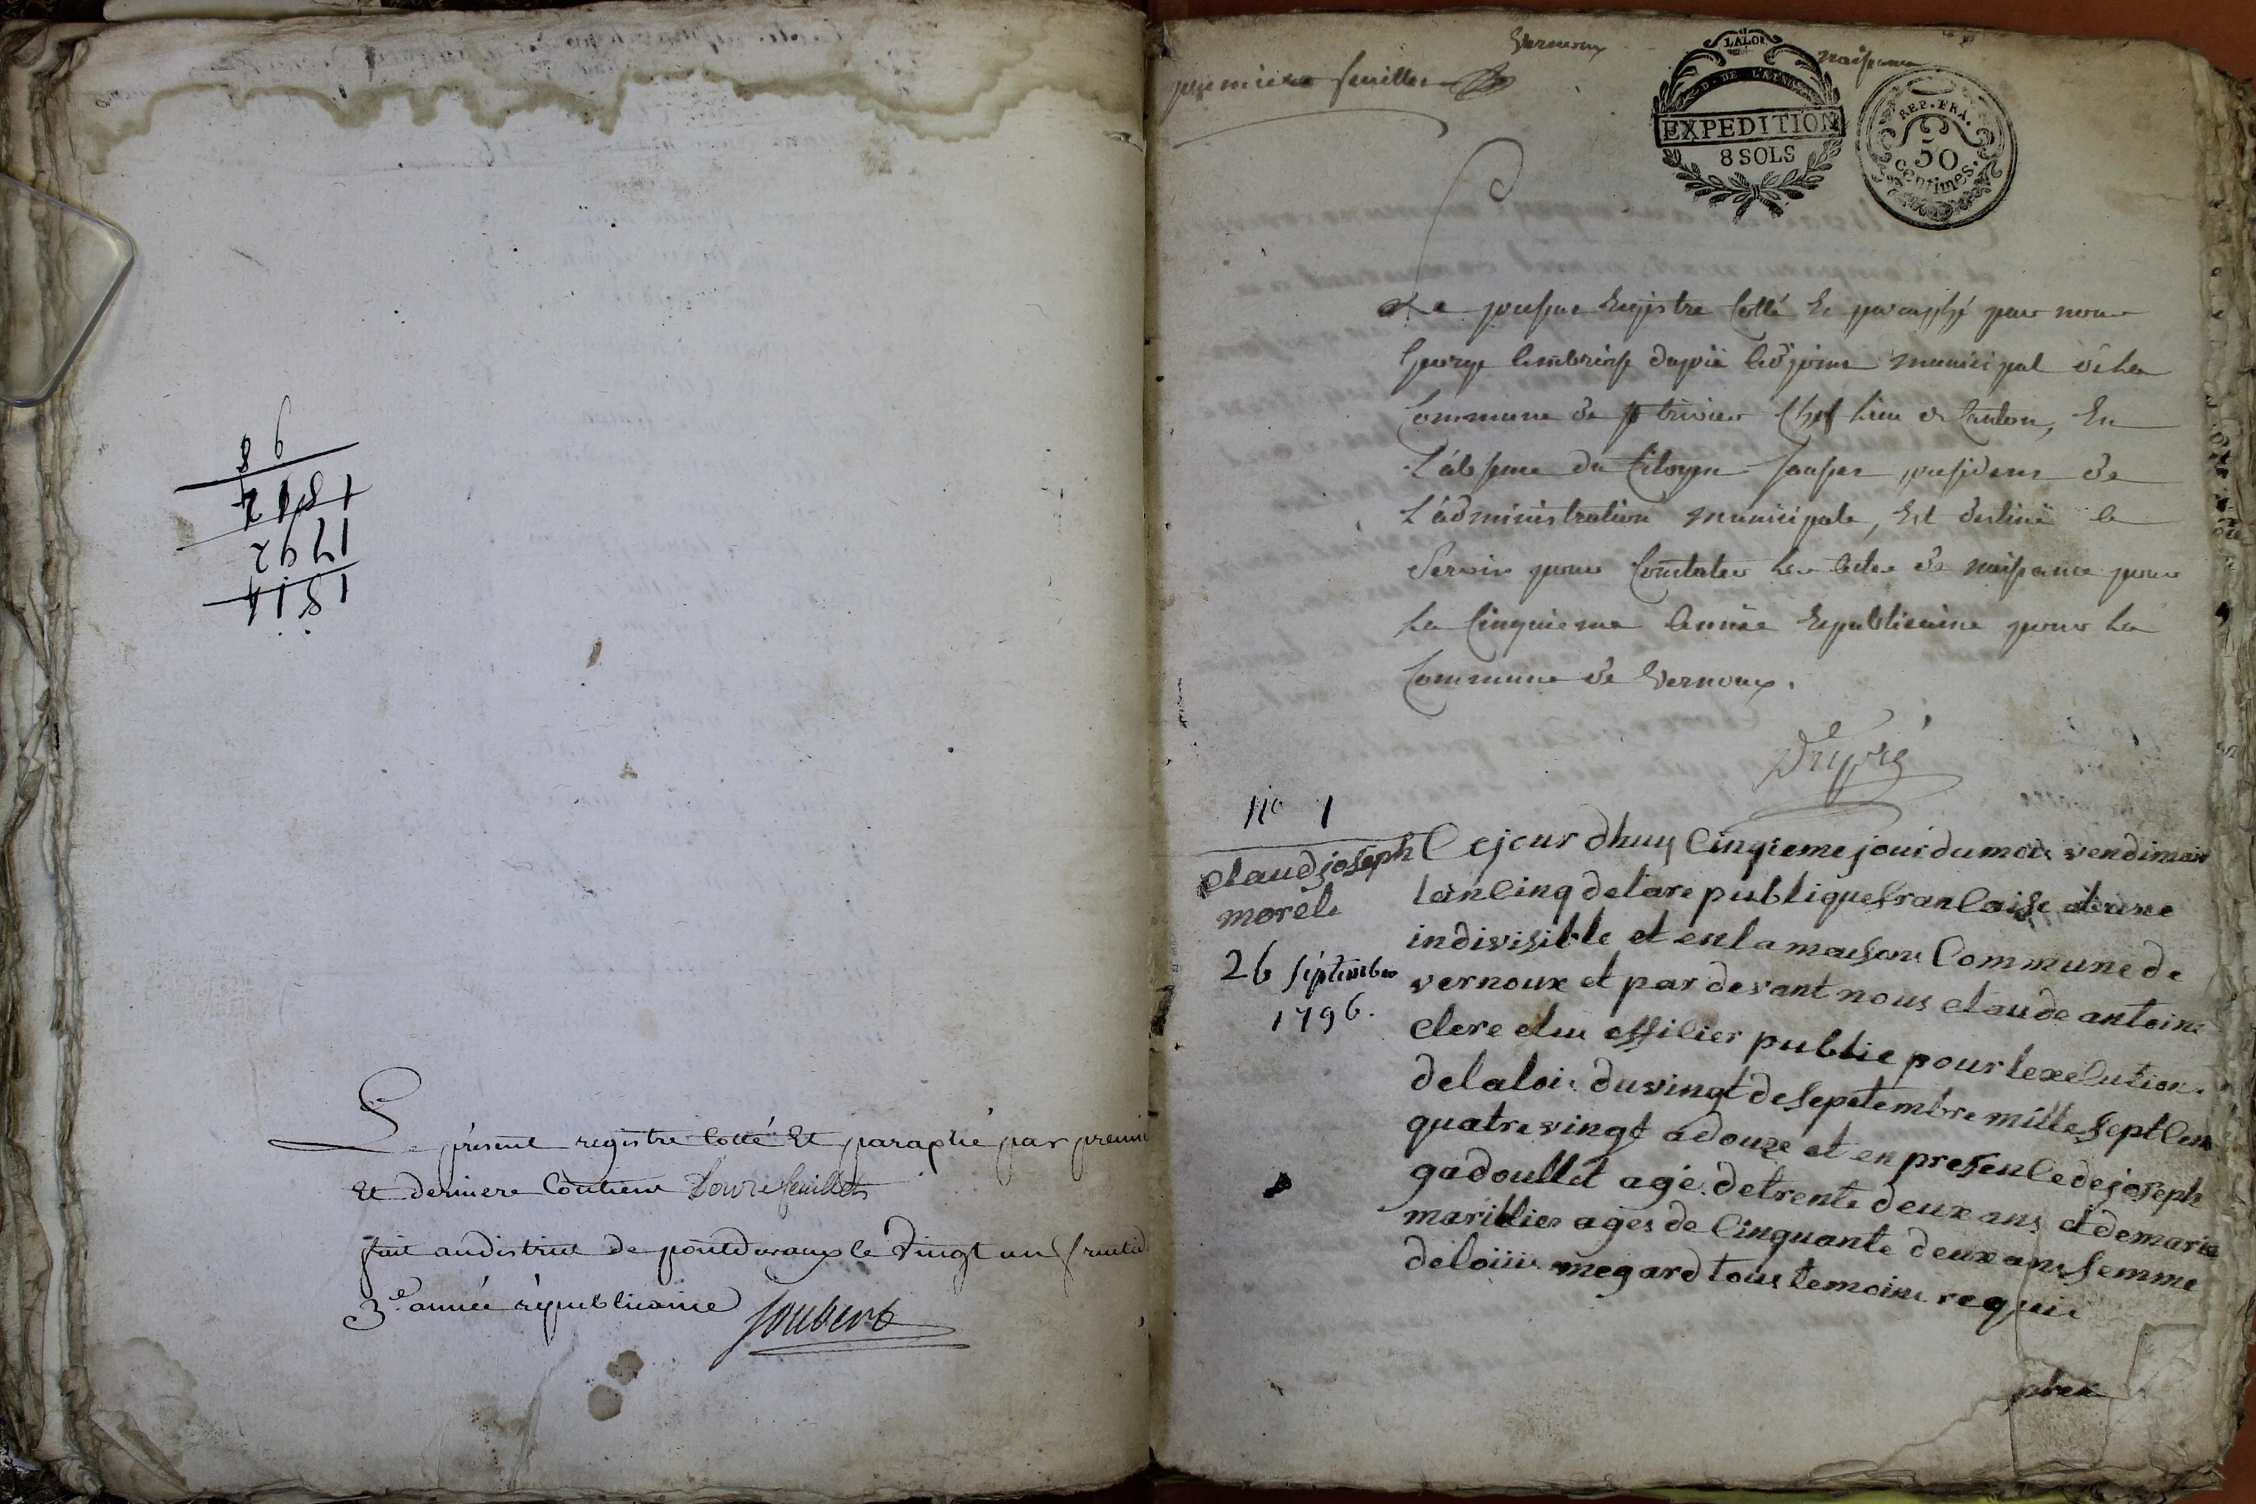 1814
1792
1812
9 8
Le présent registre cotté Et paraphé par premier
Et derniere Contient Douze feuillets
fait au district de pontdevaux le Vingt un fructid
3e. année républicaine Joubert
Vernoux
naissance
premiere feuillet
LA LOI
D. DE L'AIN
EXPEDITION
8 SOLS
REP. FRA.
50
centimes.
Le present Registre Cotté Et paraphé par nous
George Ambroise Dupré Adjoint municipal de La
Commune de St trivier Chef Lieu de Canton, En
L'absence du Citoyen president de
L'administration municipale, Est destiné a
Servir pour Constater Les Actes de naissance pour
La Cinquieme Année Republicaine pour La
Commune de Vernoux.
Dupré
No 1
Claud joseph
morel
26 septembre
1796.
Cejour dhuy Cinqieme jour du mois vendimair
lan Cinq de lare publique francaise et une
indivisible et en la maison Commune de
vernoux et par devant nous claude antoine
clere elu officier public pour lexecution
de la loi du vingt de Sepetembre mille Sept Cen
quatre vingt a douze et en presence de joseph
gadoullet agé de trente deux ans et de marie
marillier ages de Cinquante deux ans femme
de loiii megard tous temoins requi